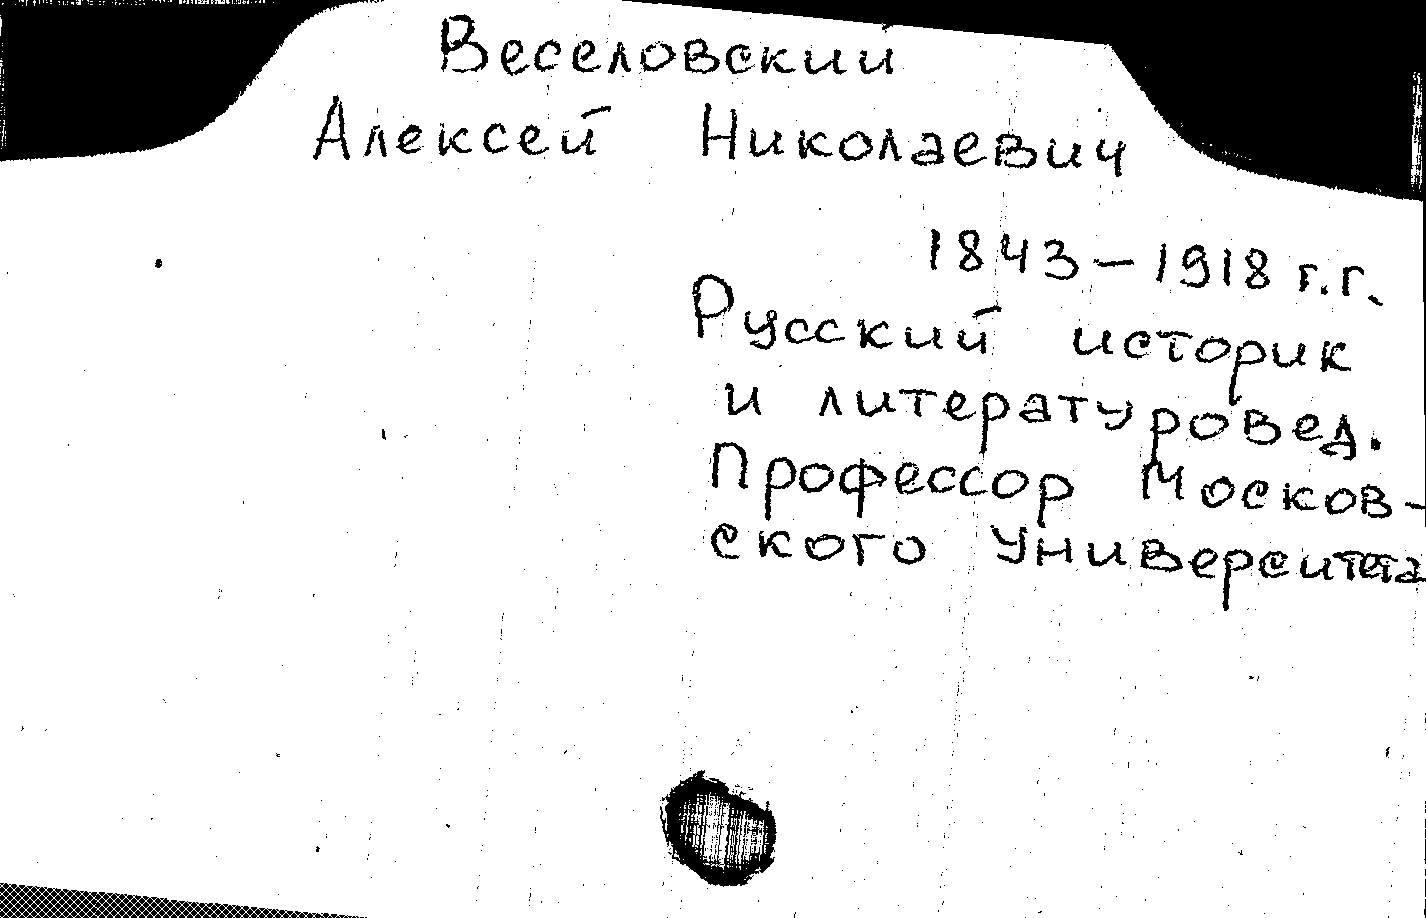 Веселовский
Алексей Николаевич
1843-1918 г.г.
Русский историк
и литературовед.
Профессор Москов-
ского Университета